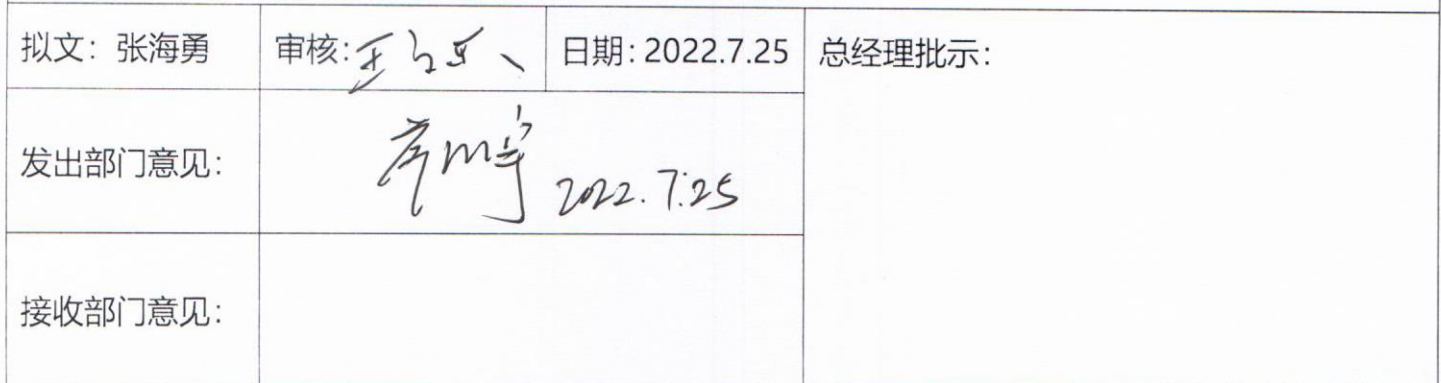 拟文：张海勇
审核：王
日期：2022.7.25
总经理批示：
发出部门意见：
2022.7.25
接收部门意见：